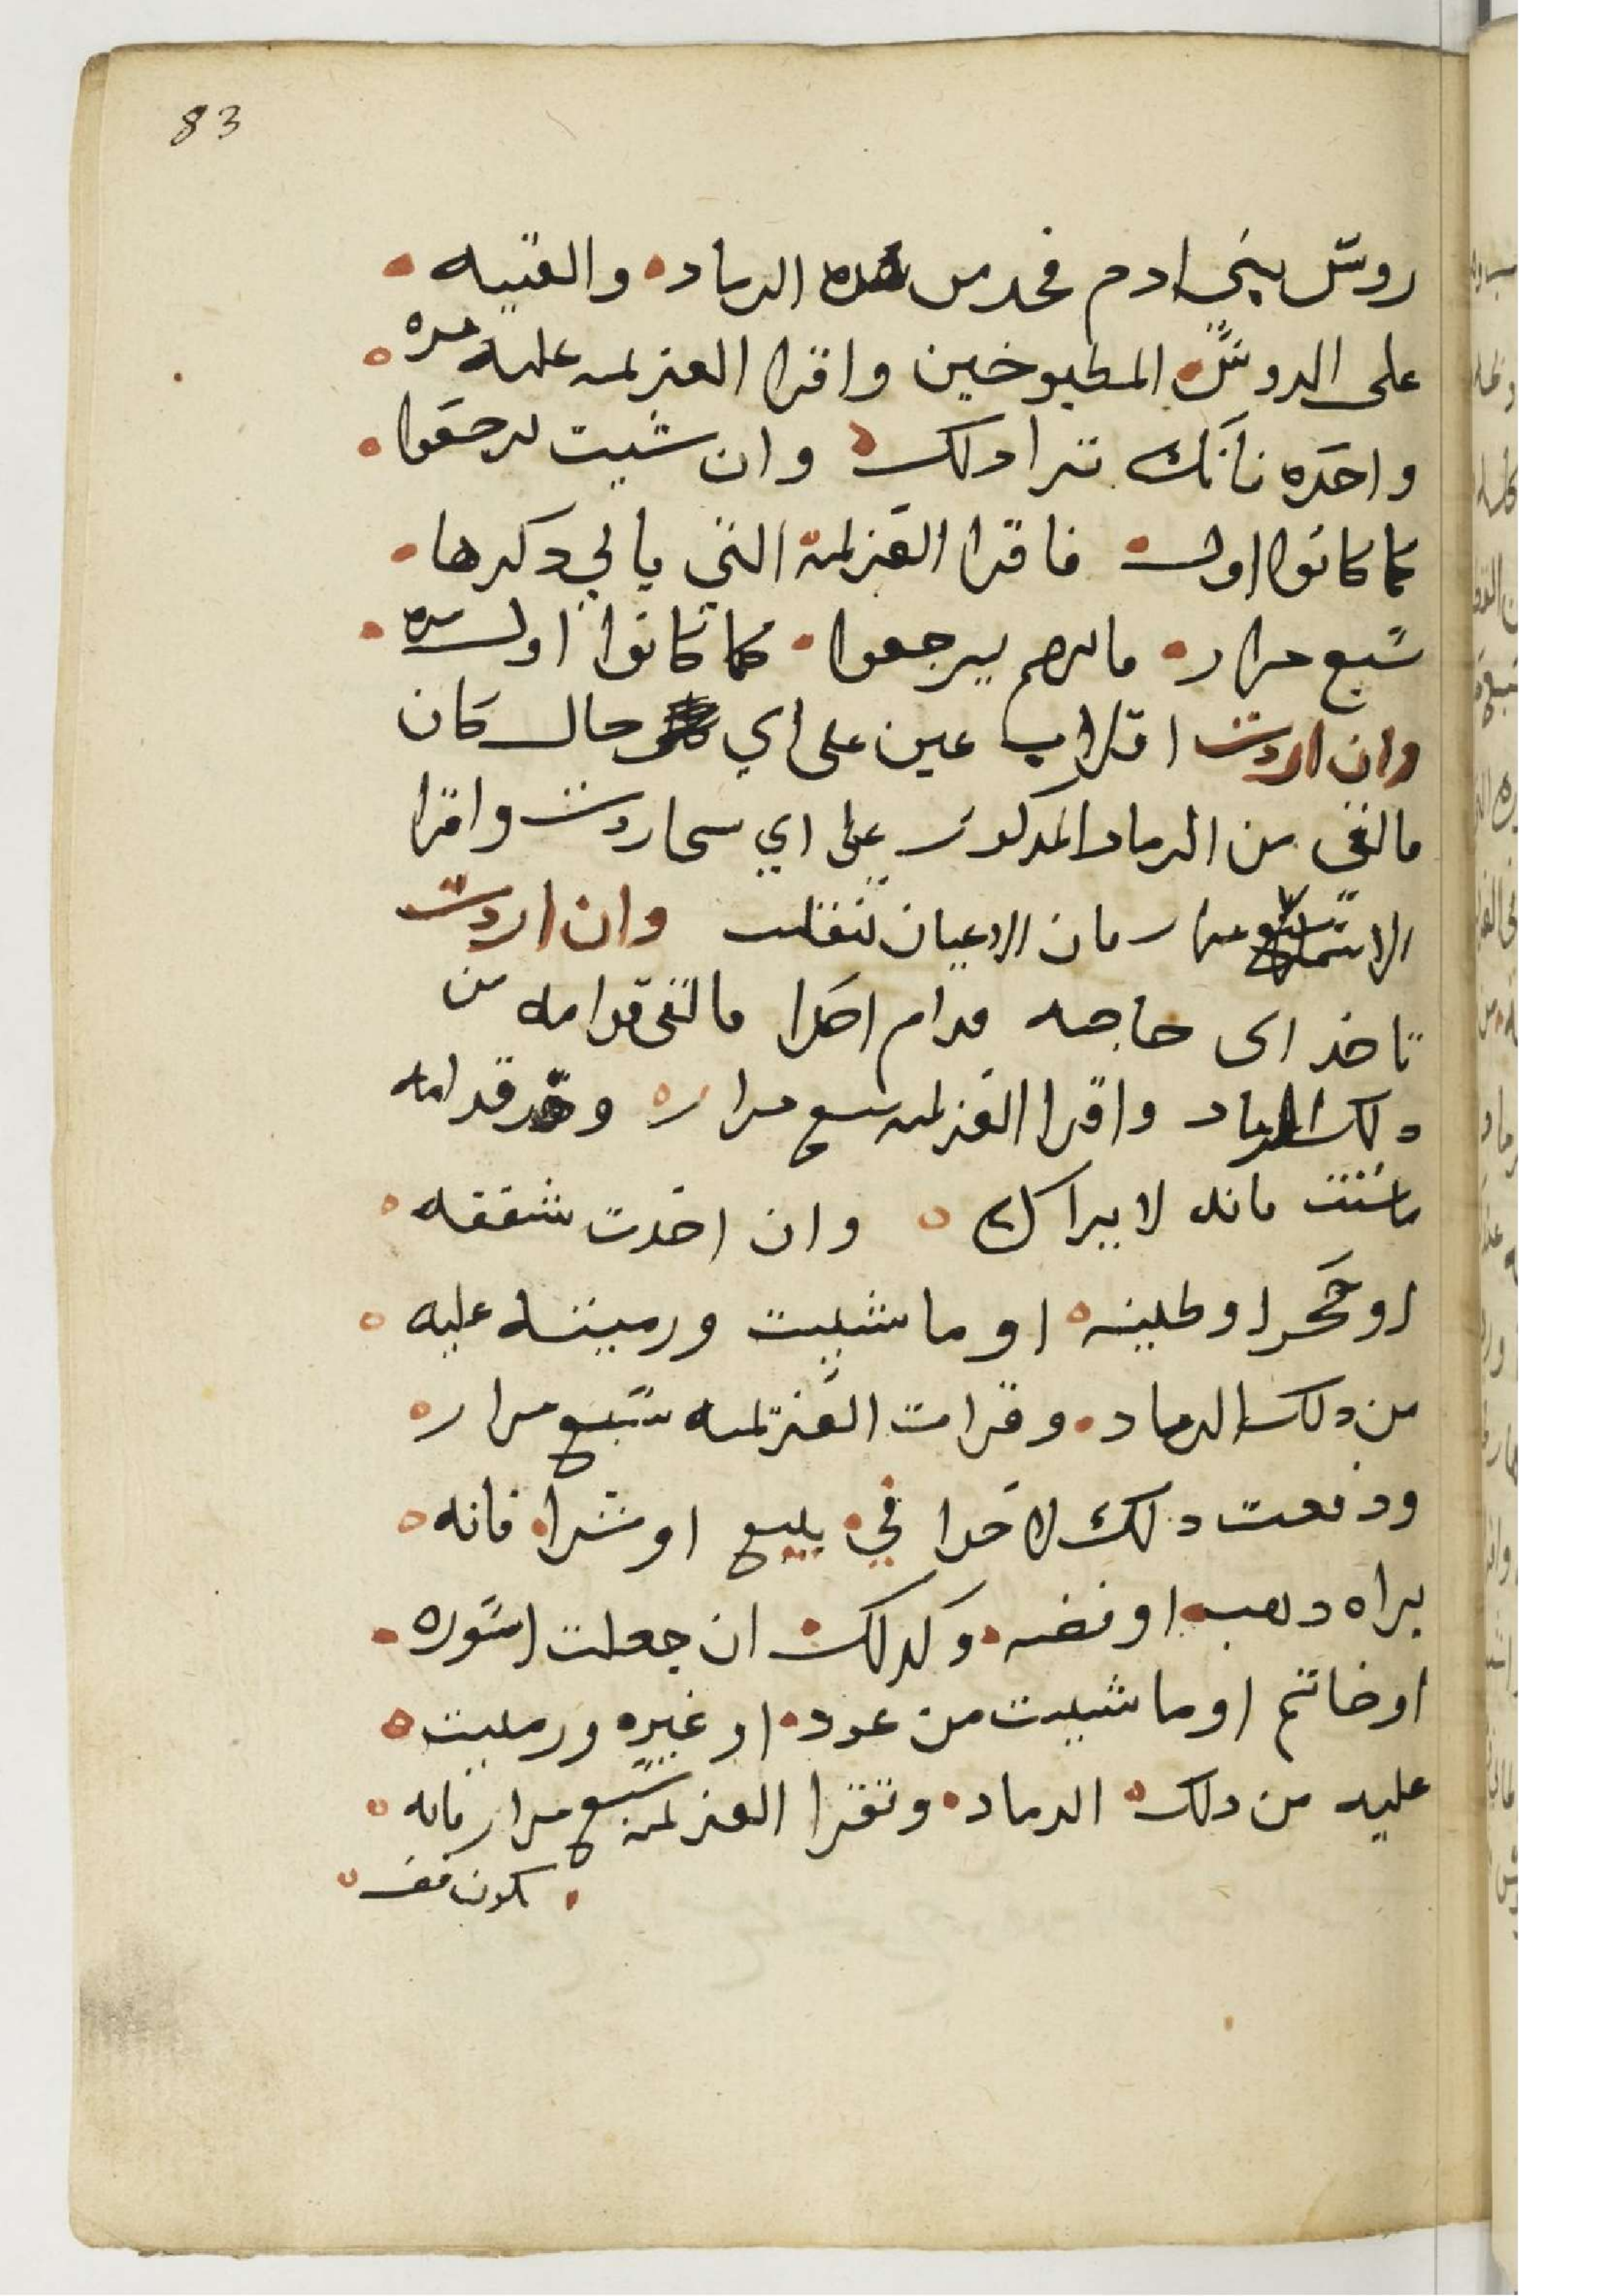 83
روس بني ادم فخد من هده الرماد والقيه
على الروس المطبوخين واقرا العزيمه عليه مره
واحده فانك ترا دلك وان شيت يرجعوا
كما كانوا اول فاقرا العزيمة التي ياتي دكرها
سبع مرار فانهم يرجعوا كما كانوا اول مره
وان اردت اقلاب عين على اي حال كان
فالقي من الرماد المدكور على اي شي اردت واقرا
الاسما سبع مرار فان الاعيان تنقلب وان اردت
تاخد اى حاجه قدام احدا فالقى قدامه من
دلك الرماد واقرا العزيمه سبع مرار وخد قدامه
ما شئت فانه لا يراك وان اخدت شقفه
او حجر او طينه او ما شييت ورميته عليه
من دلك الرماد وقرات العزيمه سبع مرار
ودفعت دلك لاحدا في بيع او شرا فانه
يراه دهب او فضه وكدلك ان جعلت اسوره
او خاتم او ما شييت من عود او غيره ورميت
عليه من دلك الرماد وتقرا العزيمه سبع مرار فانه
يكون فضه